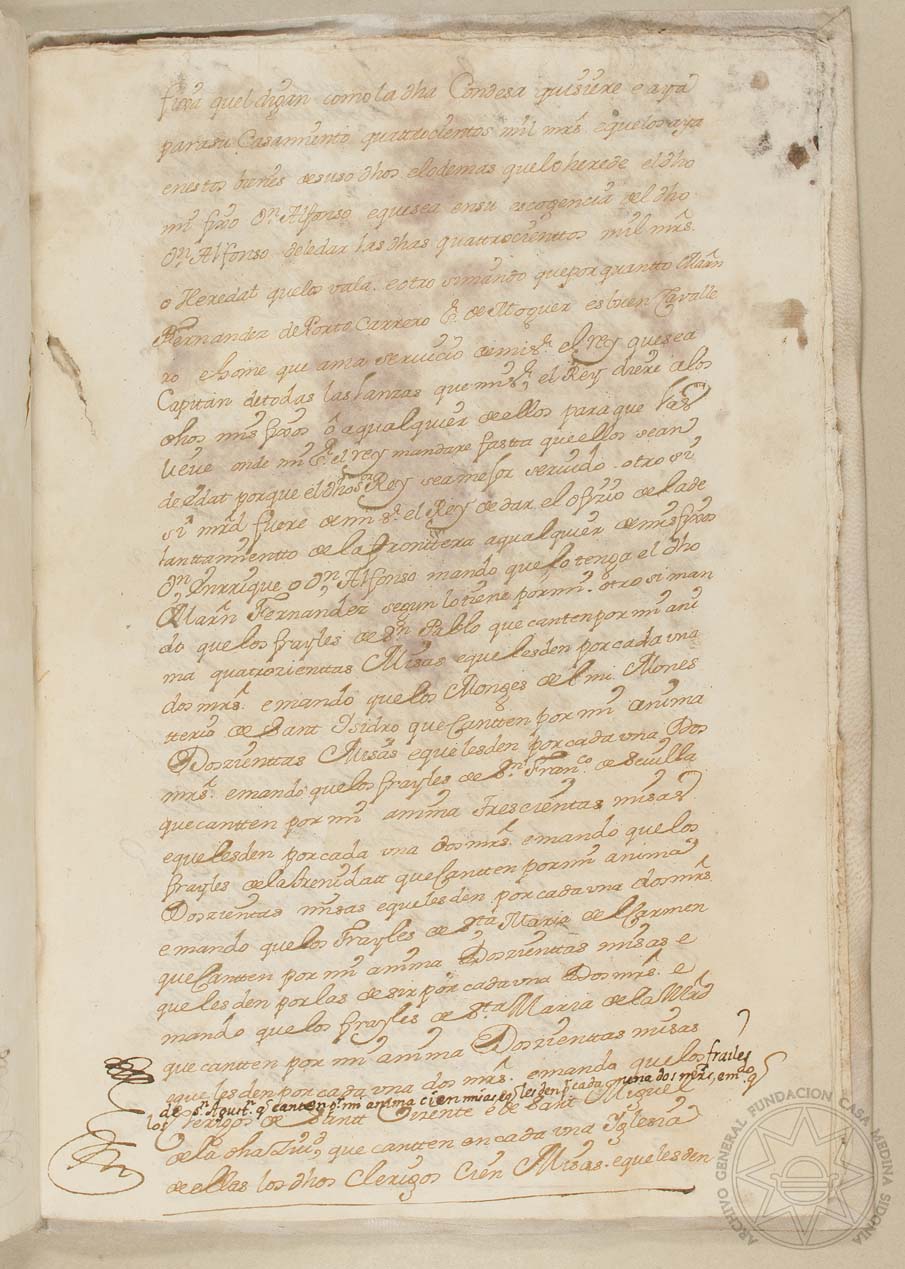 fixa quel digan como la dha Condesa quisiere e aya
para su Casamiento quattrocientos mil mrs. e que los aya
en estos bienes de suso dhos elo demas que lo herede el dho
mi fixo Dn. Alfonso e que sea en su escogencia del dho
Dn. Alfonso de le dar las dhas quattrocienttos mil mrs.
o Heredat que los vala. e otro si mando que por quantto Marn
Fernandez de Porto Carrero Sr. de Moguer es buen Cavalle
ro e home que ama servicio de mi Sr. el rey que sea
Capitan de todas las lanzas que mi Sr. el Rey diere a los
dhos mis fixos ó a qualquier de ellos para que las
lieve onde mi Sr. el rey mandare fasta que ellos sean
de edat porque el dho Sor. Rey sea mejor servido. otro si
si mrd fuere de mi Sr. el Rey de dar el ofizio de la de
lanttamientto de la fronttera a qualquier de mis fixos
Dn. Enrrique o Dn. Alfonso mando que lo tenga el dho
Marn Fernandez segun lo tiene por mi. otro si man
do que los frayles de Sn. Pablo que canten por mi ani
ma quatrozienttas Misas e que les den por cada una
dos mrs. e mando que los Monges de el mi Mones
tterio de Sant Ysidro que Cantten por mi anima
Dozienttas Misas e que les den por cada una Dos
mrs. e mando que los frayles de Sn. Franco. de Sevilla
que cantten por mi anima Trescientas misas
e que les den por cada una dos mrs. e mando que los
frayles de la trenidatt que Cantten por mi anima
Dozientas misas e que les den por cada una dos mrs.
e mando que los Frayles de Sta. Maria de el Carmen
que Cantten por mi anima Dozienttas misas e
que les den por las desir por cada una Dos mrs. e
mando que los frayles de Sta. Maria de la Mrd
que cantten por mi anima Dozienttas misas
e que les den por cada una dos mrs. e mando que los frailes
de Sn. Agust. q canten pr. mi anima cien misas e q les den pr. cada una dos mrs, e mdo. q
los Clerigos de Sant Vicente e de Sant Miguel
de la dha Ziud. que cantten en cada una Yglesia
de ellas los dhos Clerigos Cien Misas. e que les den
ARCHIVO GENERAL FUNDACION CASA MEDINA SIDONIA